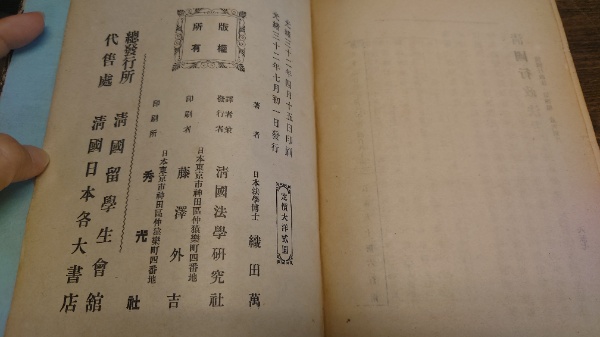 光緒三十二年四月十五日印刷
光緒三十二年七月初一日發行
定價大洋貳圓
著者 日本法學博士 織田萬
譯者兼發行者 清國法學研究社
日本東京市神田區仲猿樂町四番地
印刷者 藤澤外吉
日本東京市神田區仲猿樂町四番地
印刷所 秀光社
版權所有
總發行所 清國留學生會館
代售處 清國日本各大書店
清國行政法